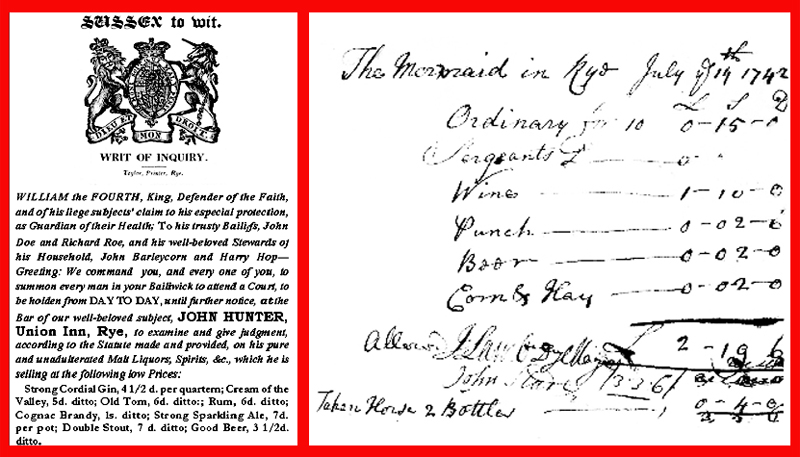 SUSSEX to wit.
DIEU ET
MON
DROIT
WRIT OF INQUIRY.
Taylor, Printer, Rye.
WILLIAM the FOURTH, King, Defender of the Faith,
and of his liege subjects' claim to his especial protection,
as Guardian of their Health; To his trusty Bailiffs, John
Doe and Richard Roe, and his well-beloved Stewards of
his Household, John Barleycorn and Harry Hop—
Greeting: We command you, and every one of you, to
summon every man in your Bailiwick to attend a Court, to
be holden from DAY TO DAY, until further notice, at the
Bar of our well-beloved subject, JOHN HUNTER,
Union Inn, Rye, to examine and give judgment,
according to the Statute made and provided, on his pure
and unadulterated Malt Liquors, Spirits, &c., which he is
selling at the following low Prices:
Strong Cordial Gin, 4 1/2 d. per quartern; Cream of the
Valley, 5d. ditto; Old Tom, 6d. ditto:; Rum, 6d. ditto;
Cognac Brandy, 1s. ditto; Strong Sparkling Ale, 7d.
per pot; Double Stout, 7 d. ditto; Good Beer, 3 1/2d.
ditto.
The Mermaid in Rye July 1742
L S D
Ordinary for 10 0-15-0
Sergeants 0
Wine 1-10-0
Punch 0-02-6
Beer 0-02-0
Corn & Hay 0-02-0
2-19
John
Taken Horse 2 Bottles 0-4-0